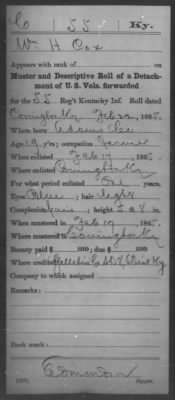 C | 55 | Ky.
Wm H Cox
Appears with rank of
Muster and Descriptive Roll of a Detach-
ment of U. S. Vols. forwarded
for the 55 Reg't Kentucky Inf. Roll dated
Covington Ky Feb 22, 1865.
Where born Adams
Age 19 y'rs; occupation Farmer
When enlisted Feb 17, 1865.
Where enlisted Covington Ky
For what period enlisted One years.
Eyes Blue; hair light
Complexion fair; height 5 ft. 8 in.
When mustered in Feb 17, 1865.
Where mustered in Covington Ky
Bounty paid $ 100; due $ 100
Where credited Gallatin Co SD 2, 6 Dist Ky
Company to which assigned
Remarks:
Book mark:
Edmondson
Copyist.